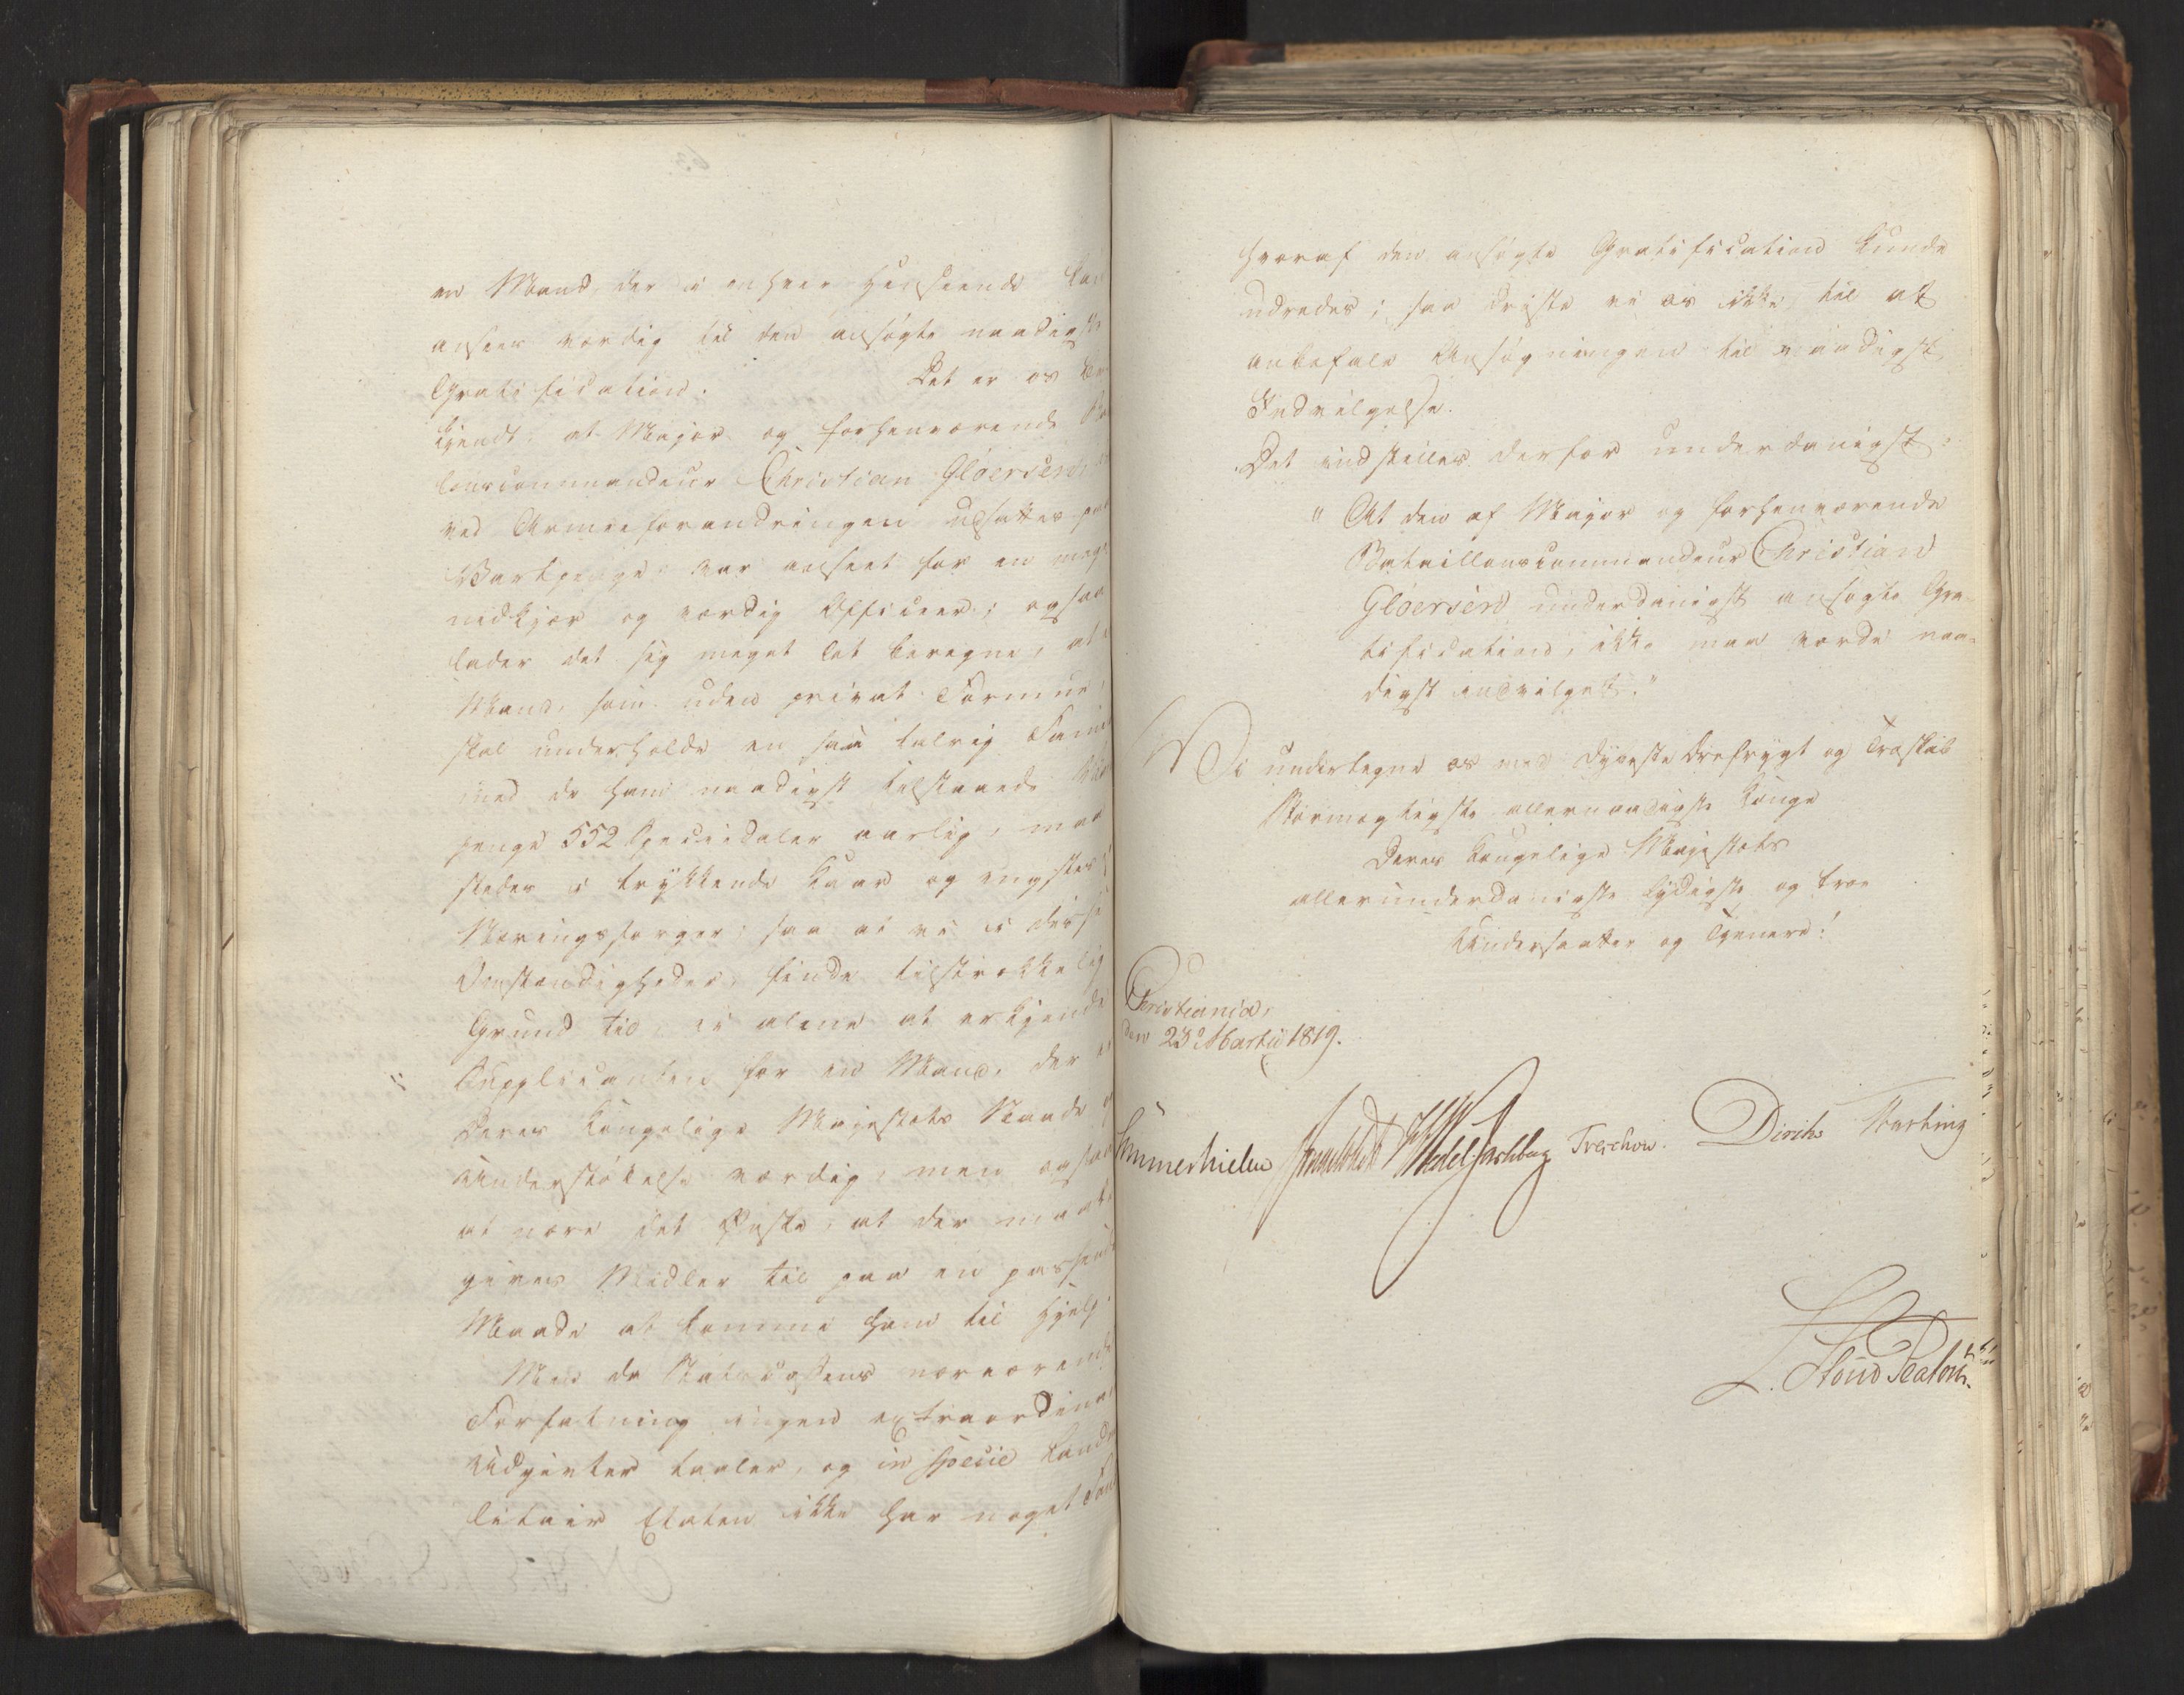 en Mand, der i enhver Henseende kan
ansees værdig til den ansøgte naadigste
Gratification. Det er os be-
kjendt, at Major og forhenværende Ba
lonscommandeur Christian Gløersen
ved Armeeforandringen udsattes paa
Vartpenge var anseet for en meget
nidkjær og værdig Officeer; ogsaa
lader det sig meget let beregne, at
Mand, som uden privat Formue,
skal underholde en saa talrig Fami
med de ham naadigst tilstaaede
penge 552 Speciedaler aarlig, maa
stedes i trykkende Kaar og ængstes
Næringssorger; saa at vi i disse
Omstændigheder, finde tilstrækkelig
Grund til, ei alene at erkjende
Supplicanten for en Mand, der er
Deres Kongelige Majestæts Naade og
Understøttelse værdig, men ogsaa
at nære det Ønske, at der maatte
gives Midler til paa en passende
Maade at komme ham til Hjelp.
Men da Statscassens nærværende
Forfatning ingen extraordinai
Udgivter taaler, og in specie Landm
litair Etaten ikke har noget Fon
hvoraf den ansøgte Gratification kunde
udredes; saa driste vi os ikke til at
anbefale Ansøgningen til naadigst
Indvilgelse.
Det indstilles derfor underdanigst:
"At den af Major og forhenværende
Bataillonscommandeur Christian
Gløersen underdanigst ansøgte Gra-
tification, ikke maa vorde naa-
digst indvilget."
Vi undertegne os med dybeste Ærefrygt og Troskab
Stormægtigste allernaadigste Konge
Deres Kongelige Majestæts
allerunderdanigste lydigste og troe
Undersaatter og Tjenere!
Christiania,
den 23de Martii 1819.
Sommerhielm Wedel Jarlsberg Treschow. Diriks Fasting
L. Stoud Platou